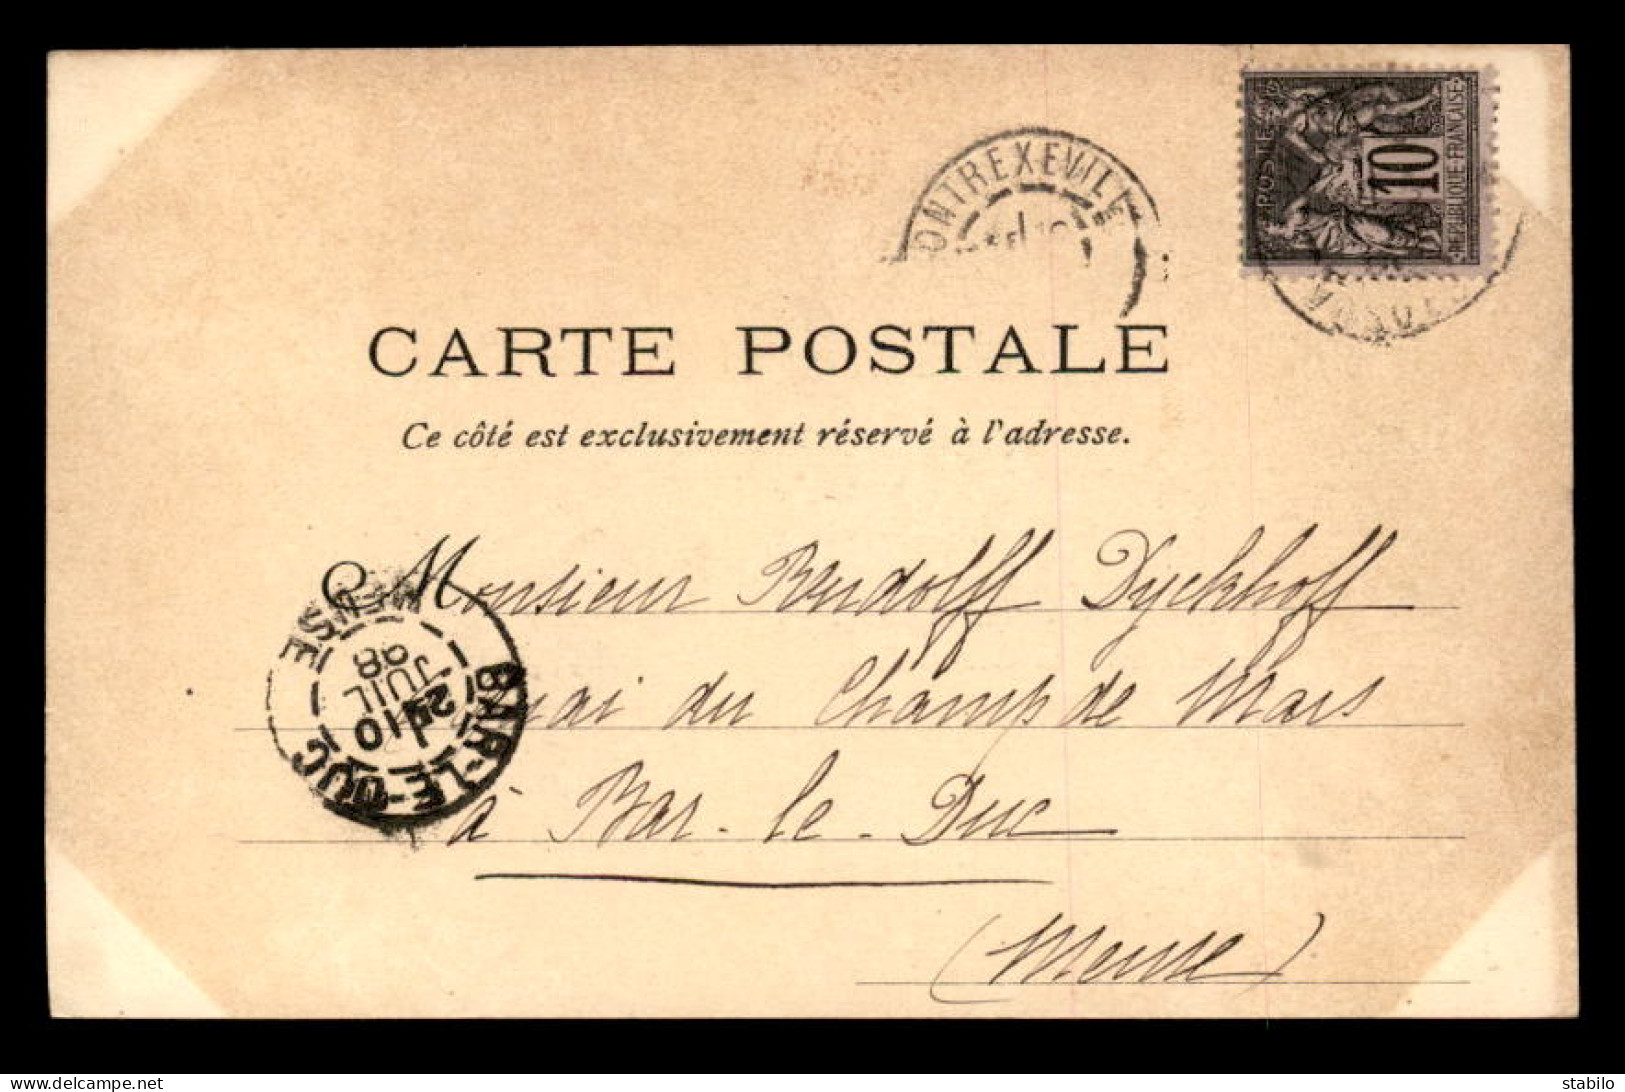 ONTREXEVILLE
POSTES
10
REPUBLIQUE FRANÇAISE
CARTE POSTALE
Ce côté est exclusivement réservé à l'adresse.
Monsieur Rudolff Dyckhoff
Quai du Champ de Mars
à Bar-le-Duc
(Meuse)
BAR-LE-DUC
10
JUIL
98
MEUSE
www.delcampe.net
stabilo